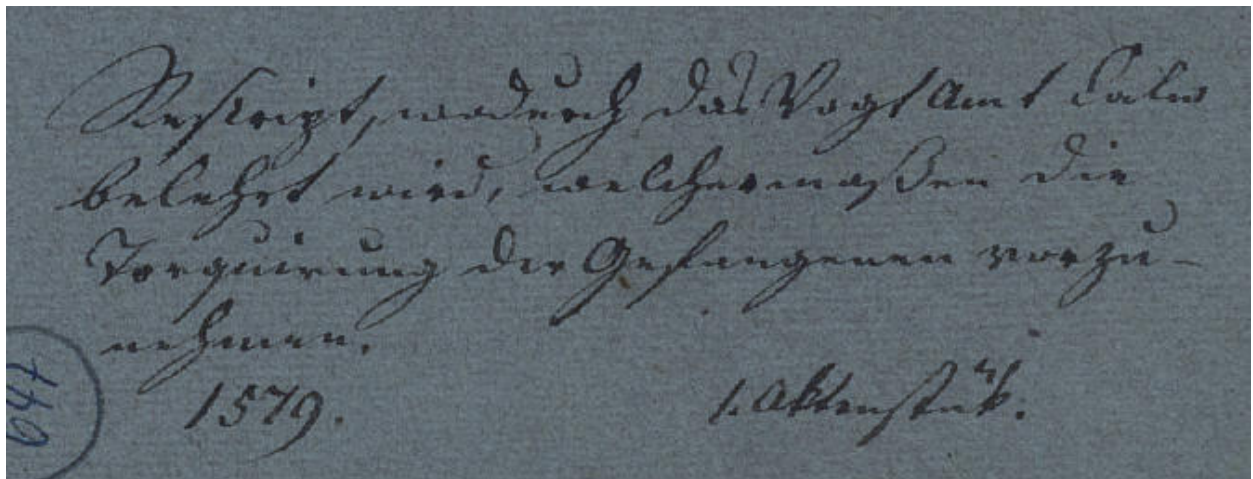 Rescript, wodurch das Vogt Amt Calw
belehrt wird, welchermaßen die
Torquirung der Gefangenen vorzu-
nehmen.
1579. 1. Aktenstük.
647